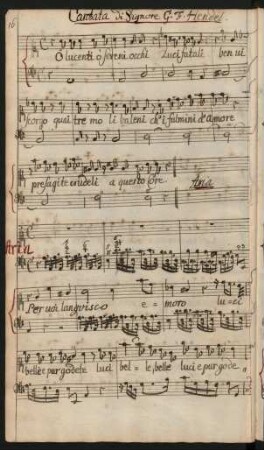 16
Cantata di Signore G. F. Hendel.
O lucenti o sereni occhi Luci fatali ben vi
scorgo quai tremoli baleni ch'i fulmini d'Amore
presagite crudeli a questo core. Aria
Aria
Per voi languisco e = moro luci
belle e pur godete luci bel = le, belle luci e pur gode,,